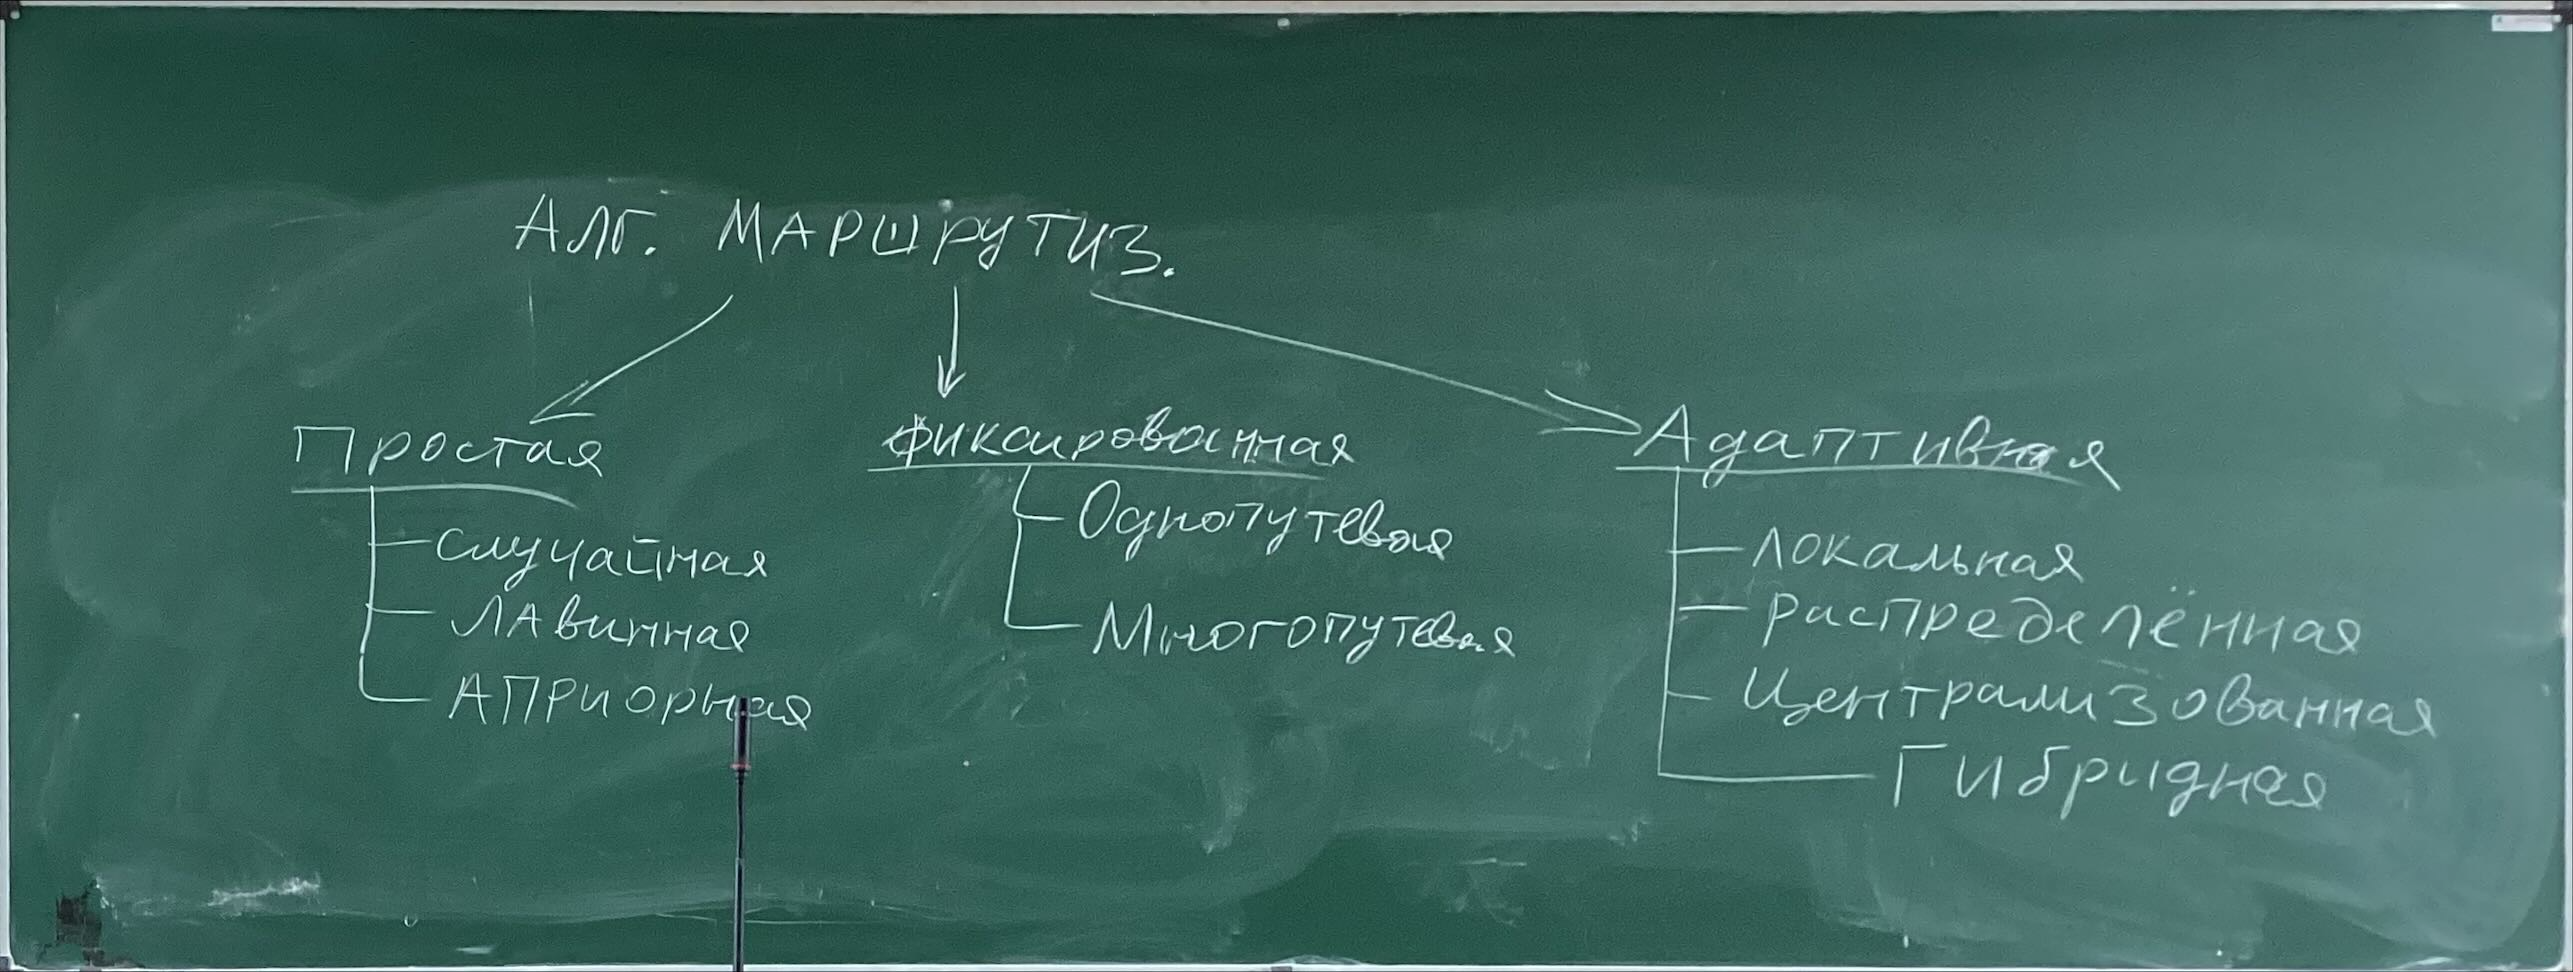 АЛГ. МАРШРУТИЗ.
Простая
случайная
Лавинная
Априорная
Фиксированная
Однопутевая
Многопутевая
Адаптивная
Локальная
распределённая
Централизованная
Гибридная